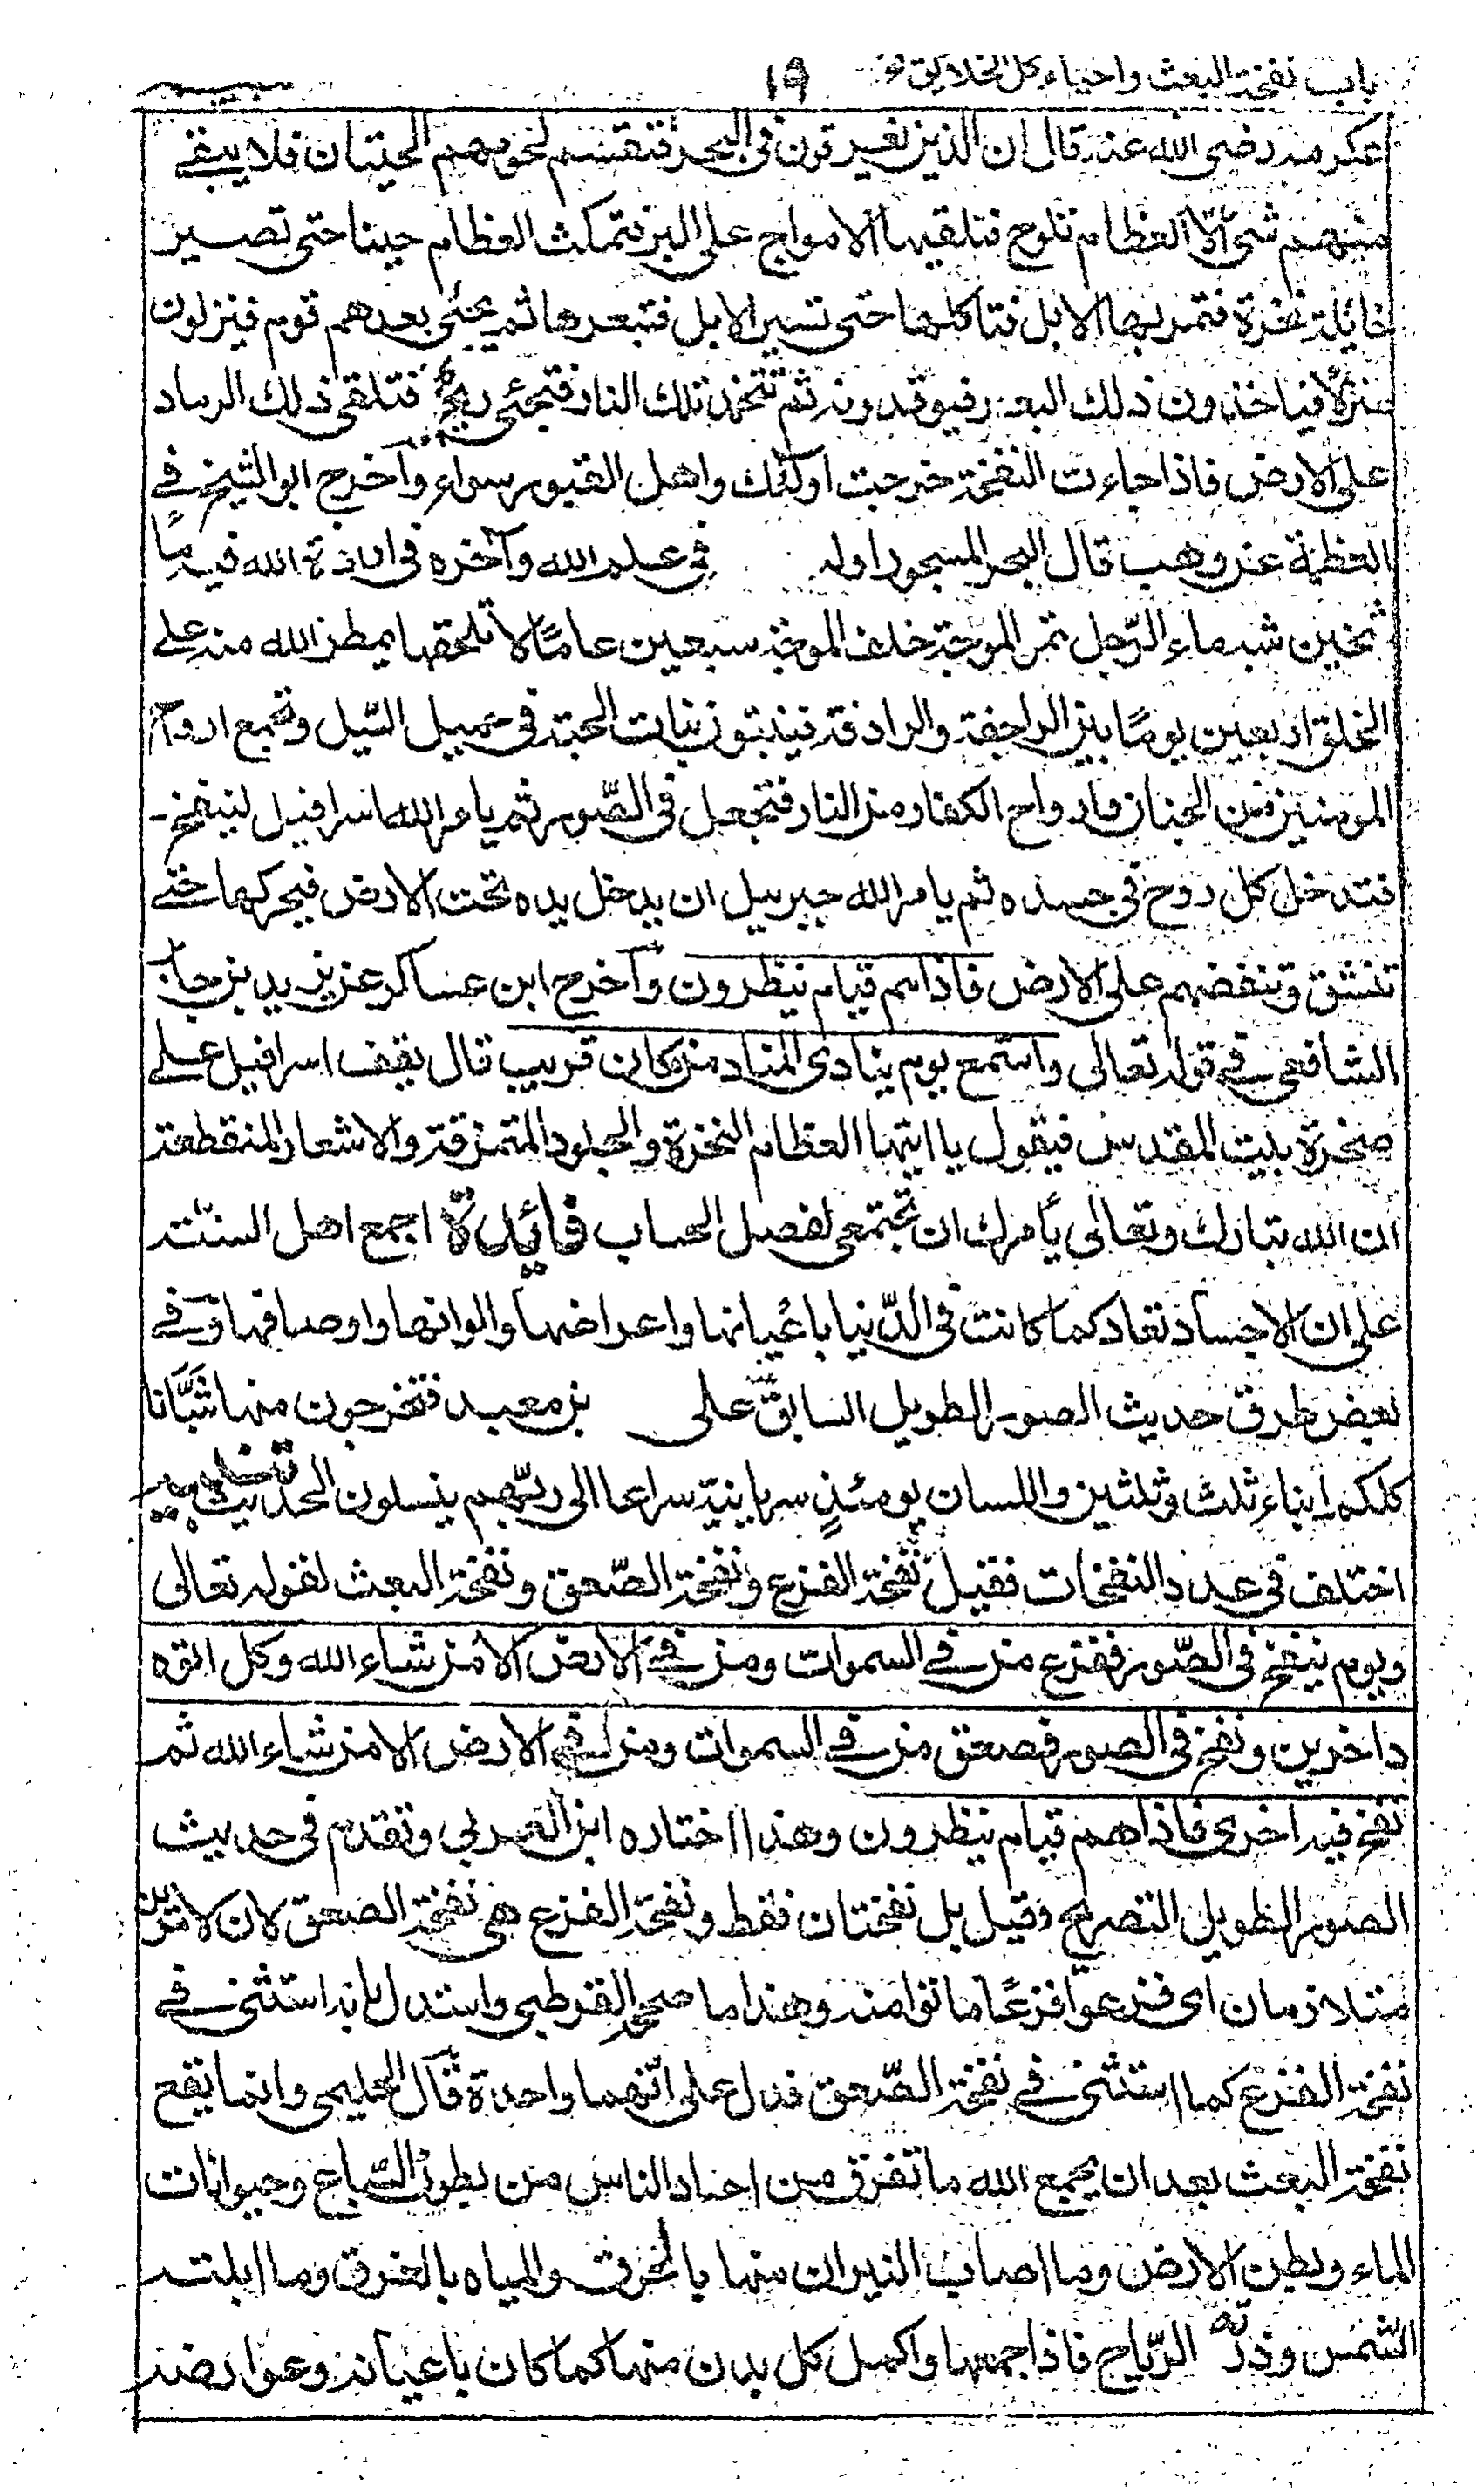 باب نفخة البعث واحياء كل الخلائق ١٩
عكرمة رضى الله عنه قال ان الذين تغير قون فى البحر فتقتسم لحومهم الحيتان فلا يبقے
منهم شئ الا العظام تلوح فتلقيها الامواج على البر فتمكث العظام حينا حتى تصير
حائلة نخرة فتمر بها الابل فتاكلها حتى تسير الابل فتبعرها ثم يجئى بعدهم قوم فينزلون
منزلا فياخذون ذلك البعر فيوقدونه ثم تتخمد تلك النار فتجئى ريح فتلقى ذلك الرماد
على الارض فاذا جاءت النفخة خرجت اولئك واهل القبور سواء وآخرج ابوالشيخ فے
العظمة عن وهب قال البحر المسجور اوله فى علم الله وآخره فى ارادة الله فيه ماً
ثخين شبه ماء الرّجل تمر الموجة خلف الموجة سبعين عامًا لا تلحقها يمطر الله منه علے
الخلق اربعين يومًا بين الراجفة والرادفة فينبتون نبات الحبة فى حميل السّيل وتجمع ارواح
المومنين من الجنان وارواح الكفار من النار فتجعل فى الصّور ثم يامر الله اسرافيل لنينفخ
فتدخل كل روح فى جسده ثم يامر الله جبربيل ان يدخل يده تحت الارض فيحركها حتے
تنشق وتنفضهم على الارض فاذاهم قيام ينظرون وآخرج ابن عساكر عن يزيد بن جابر
الشافعى فے قوله تعالى واستمع يوم ينادى المناد من مكان قريب قال يقف اسرافيل علے
صخرة بيت المقدس فيقول يا ايتها العظام النخرة والجلود المتمزقة والاشعار المنقطعة
ان الله تبارك وتعالى يأمرك ان تجتمعى لفصل الحساب فائدة اجمع اهل السنّة
على ان الاجساد تعاد كما كانت فى الدّنيا باعيانها واعراضها والوانها واوصافها وفے
بعض طرق حديث الصور الطويل السابق على بن معبد فتخرجون منها شبّانا
كلكم ابناء ثلث وثلثين واللسان يومئذٍ سريانيّة سراعا الى ربّهم ينسلون الحديث تنبيه
اختلف فى عدد النفخات فقيل نفخة الفزع ونفخة الصّعق ونفخة البعث لقوله تعالى
ويوم ينفخ فى الصّور ففزع من فے السموات ومن فے الارض الا من شاء الله وكل اتوه
داخرين ونفخ فى الصور فصعق من فے السموات ومن فے الارض الا من شاء الله ثم
نفخ فيه اخرى فاذاهم قيام ينظرون وهذا اختاره ابن العربي وتقدم فى حديث
الصور الطويل التصريح وقيل بل نفختان فقط ونفخة الفزع هى نفخة الصعق لان لامرين
متلازمان اى فزعوا فزعًا ماتوا منه وهذا ما صححه القرطبى واستدل بانه استثنى فے
نفخة الفزع كما استثنى فے نفخة الصّعق فدل على انّهما واحدة قال الحليمى وانما يقع
نفخة البعث بعد ان يجمع الله ما تفرق من اجساد الناس من بطون السّباع وحيوانات
الماء وبطين الارض وما اصاب النيران منها بالحرق والمياه بالغرق وما ابلته
الشّمس وذرته الرّياح فاذا جمعها واكمل كل بدن منها كما كان باعيانه وعوارضه